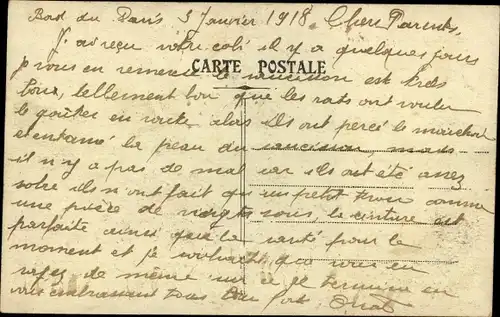 Bord du Paris 3 Janvier 1918. Chers Parents
J'ai reçu votre coli il y a quelques jours
je vous en remercie le saucisson est très
CARTE POSTALE
bon, tellement bon que les rats ont voulu
le goûter en route alors ils ont percé le mouchoir
et entamé la peau du saucisson mais
il n'y a pas de mal car ils ont été assez
sobre ils n'ont fait qu'un petit trou comme
une pièce de vingts sous, la ceinture est
parfaite ainsi que la santé pour le
moment et je souhaite que vous en
soyez de même sur ce je termine en
vous embrassant tous bien fort